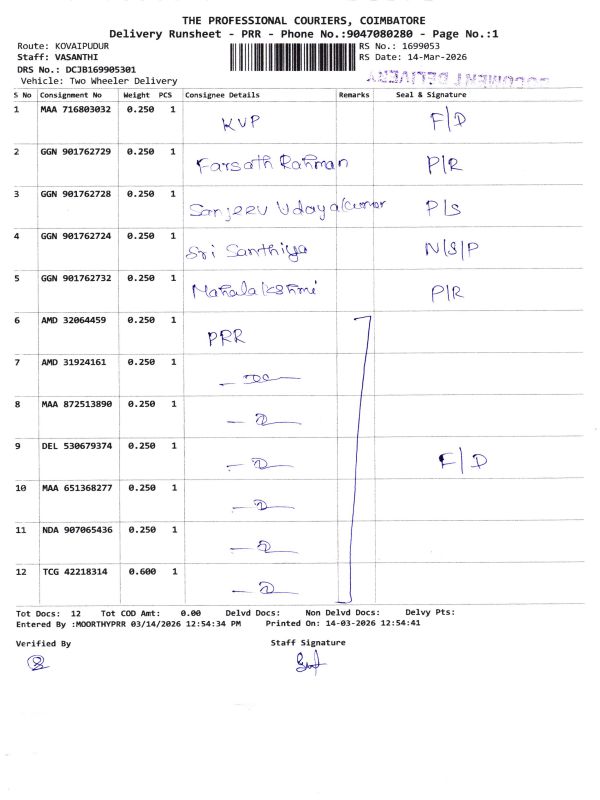 THE PROFESSIONAL COURIERS, COIMBATORE
Delivery Runsheet - PRR - Phone No.:9047080280 - Page No.:1
Route: KOVAIPUDUR RS No.: 1699053
Staff: VASANTHI RS Date: 14-Mar-2026
DRS No.: DCJB169905301
Vehicle: Two Wheeler Delivery
DOCUMENT DELIVERY
S No Consignment No Weight PCS Consignee Details Remarks Seal & Signature
1 MAA 716803032 0.250 1 KVP F|D
2 GGN 901762729 0.250 1 Farsath Rahman P|R
3 GGN 901762728 0.250 1 Sanjeev Udayakumar P|S
4 GGN 901762724 0.250 1 Sri Santhiya N|S|P
5 GGN 901762732 0.250 1 Mahalakshmi P|R
6 AMD 32064459 0.250 1 PRR
7 AMD 31924161 0.250 1
8 MAA 872513890 0.250 1
9 DEL 530679374 0.250 1 F|D
10 MAA 651368277 0.250 1
11 NDA 907065436 0.250 1
12 TCG 42218314 0.600 1
Tot Docs: 12 Tot COD Amt: 0.00 Delvd Docs: Non Delvd Docs: Delvy Pts:
Entered By :MOORTHYPRR 03/14/2026 12:54:34 PM Printed On: 14-03-2026 12:54:41
Verified By Staff Signature